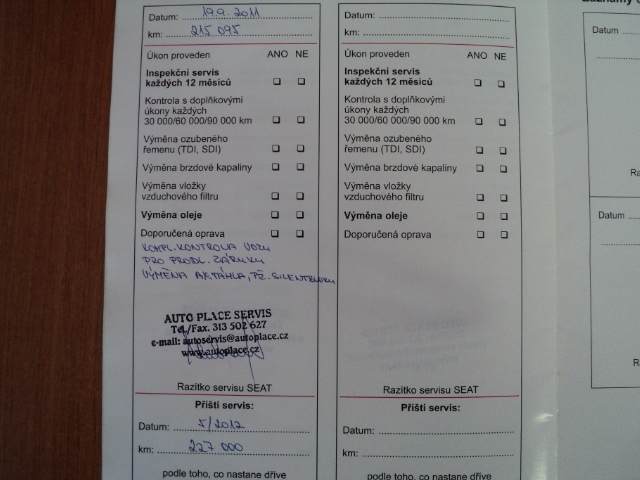 Datum: 19.9.2011
km: 215 095
Úkon proveden ANO NE
Inspekční servis
každých 12 měsíců
Kontrola s doplňkovými
úkony každých
30 000/60 000/90 000 km
Výměna ozubeného
řemenu (TDI, SDI)
Výměna brzdové kapaliny
Výměna vložky
vzduchového filtru
Výměna oleje
Doporučená oprava
KOMPL. KONTROLA VOZU
PRO PRODL. ZÁRUKU
VÝMĚNA AX.TÁHLA, PŽ. SILENTBLOKU
AUTO PLACE SERVIS
Tel./Fax. 313 502 627
e-mail: autoservis@autoplace.cz
www.autoplace.cz
Razítko servisu SEAT
Příští servis:
Datum: 5/2012
km: 227 000
podle toho, co nastane dříve
Datum:
km:
Úkon proveden ANO NE
Inspekční servis
každých 12 měsíců
Kontrola s doplňkovými
úkony každých
30 000/60 000/90 000 km
Výměna ozubeného
řemenu (TDI, SDI)
Výměna brzdové kapaliny
Výměna vložky
vzduchového filtru
Výměna oleje
Doporučená oprava
Razítko servisu SEAT
Příští servis:
Datum:
km:
podle toho, co nastane dříve
Záznamy
Datum
Ra
Datum